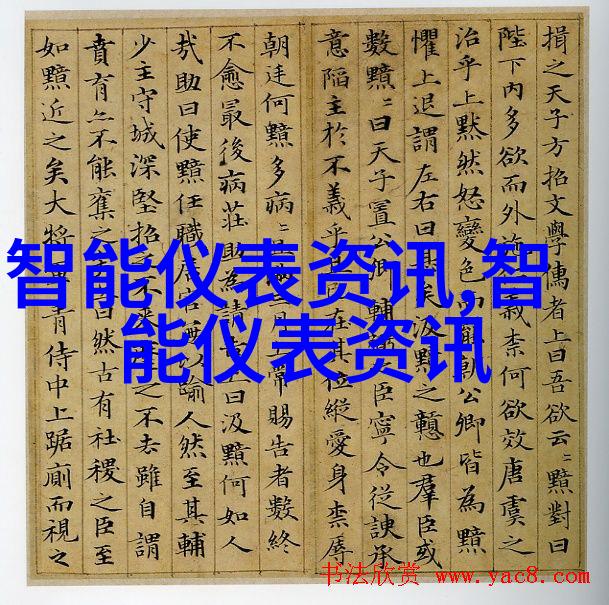 損之天子方招文學儒者上曰吾欲云〻黯對曰
陛下内多欲而外施義柰何欲效唐虞之
治乎上黙然怒變色公卿皆為黯
懼上退謂左右曰矣汲黯之戇也羣臣或
數黯〻曰天子置公卿輔臣寧令從諛承
意陷主於不義乎在其位縱愛身柰辱
朝廷何黯多病〻三月常賜告者數終
不愈最後病莊助為請上曰汲黯何如人
㢤助曰使黯任職居官以踰人然至其輔
少主守城深堅招不之不去雖自謂
賁育亡不能奪之曰然古有社稷之臣至
如黯近之矣大將青侍中上踞廁而視之
智能仪表资讯,智
能仪表资讯
书法欣赏 www.yac8.com